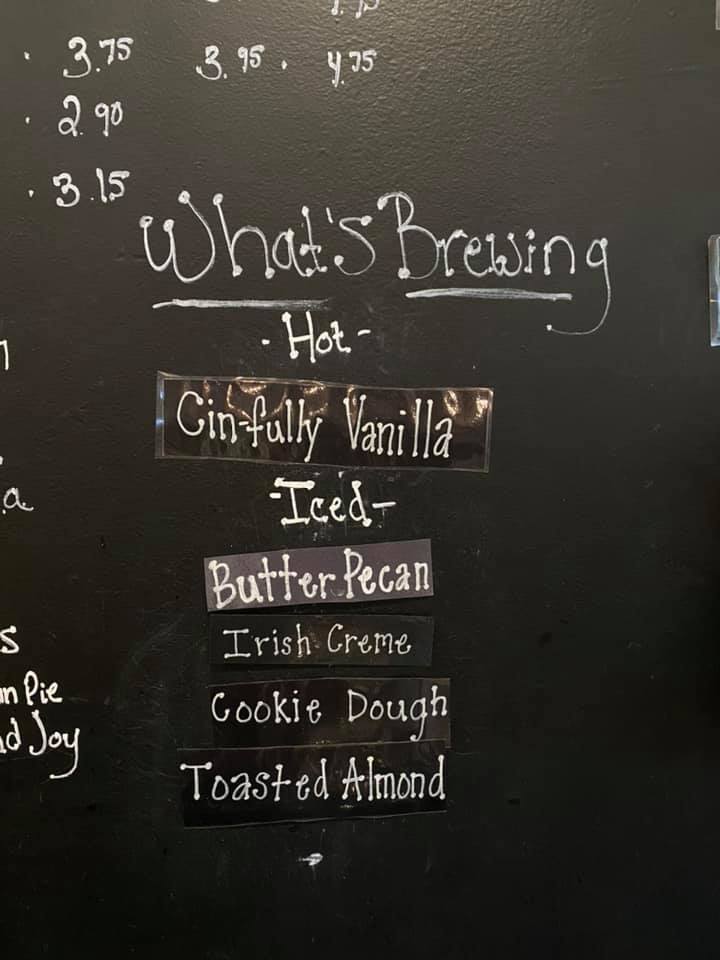 . 3.75 3.95 . 4.75
. 2.90
. 3.15
What's Brewing
- Hot -
Cin-fully Vanilla
-Iced-
Butter Pecan
Irish Creme
Cookie Dough
Toasted Almond
a
s
Pie
Joy